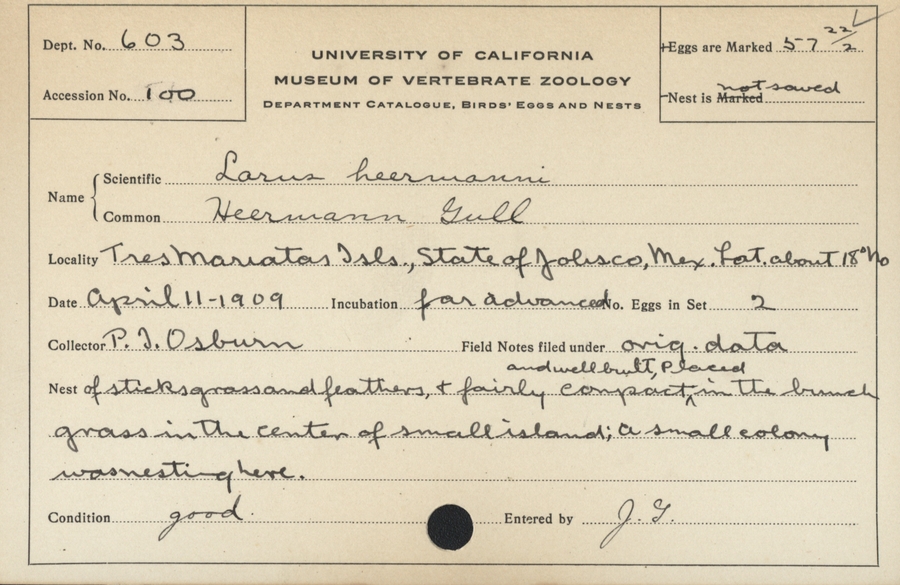 Dept. No. 603
Accession No. 100
UNIVERSITY OF CALIFORNIA
MUSEUM OF VERTEBRATE ZOOLOGY
DEPARTMENT CATALOGUE, BIRDS' EGGS AND NESTS
Eggs are Marked 57 22/2
Nest is Marked not saved
Name
Scientific Larus heermanni
Common Heermann Gull
Locality Tres Mariatas Isls., State of Jolisco, Mex. Lat. about 18° No
Date April 11-1909 Incubation far advanced No. Eggs in Set 2
Collector P. I. Osburn Field Notes filed under orig. data
and well built, Placed
Nest of sticks grass and feathers, & fairly compact, in the bunch
grass in the center of small island; a small colony
was nesting here.
Condition good. Entered by J. G.